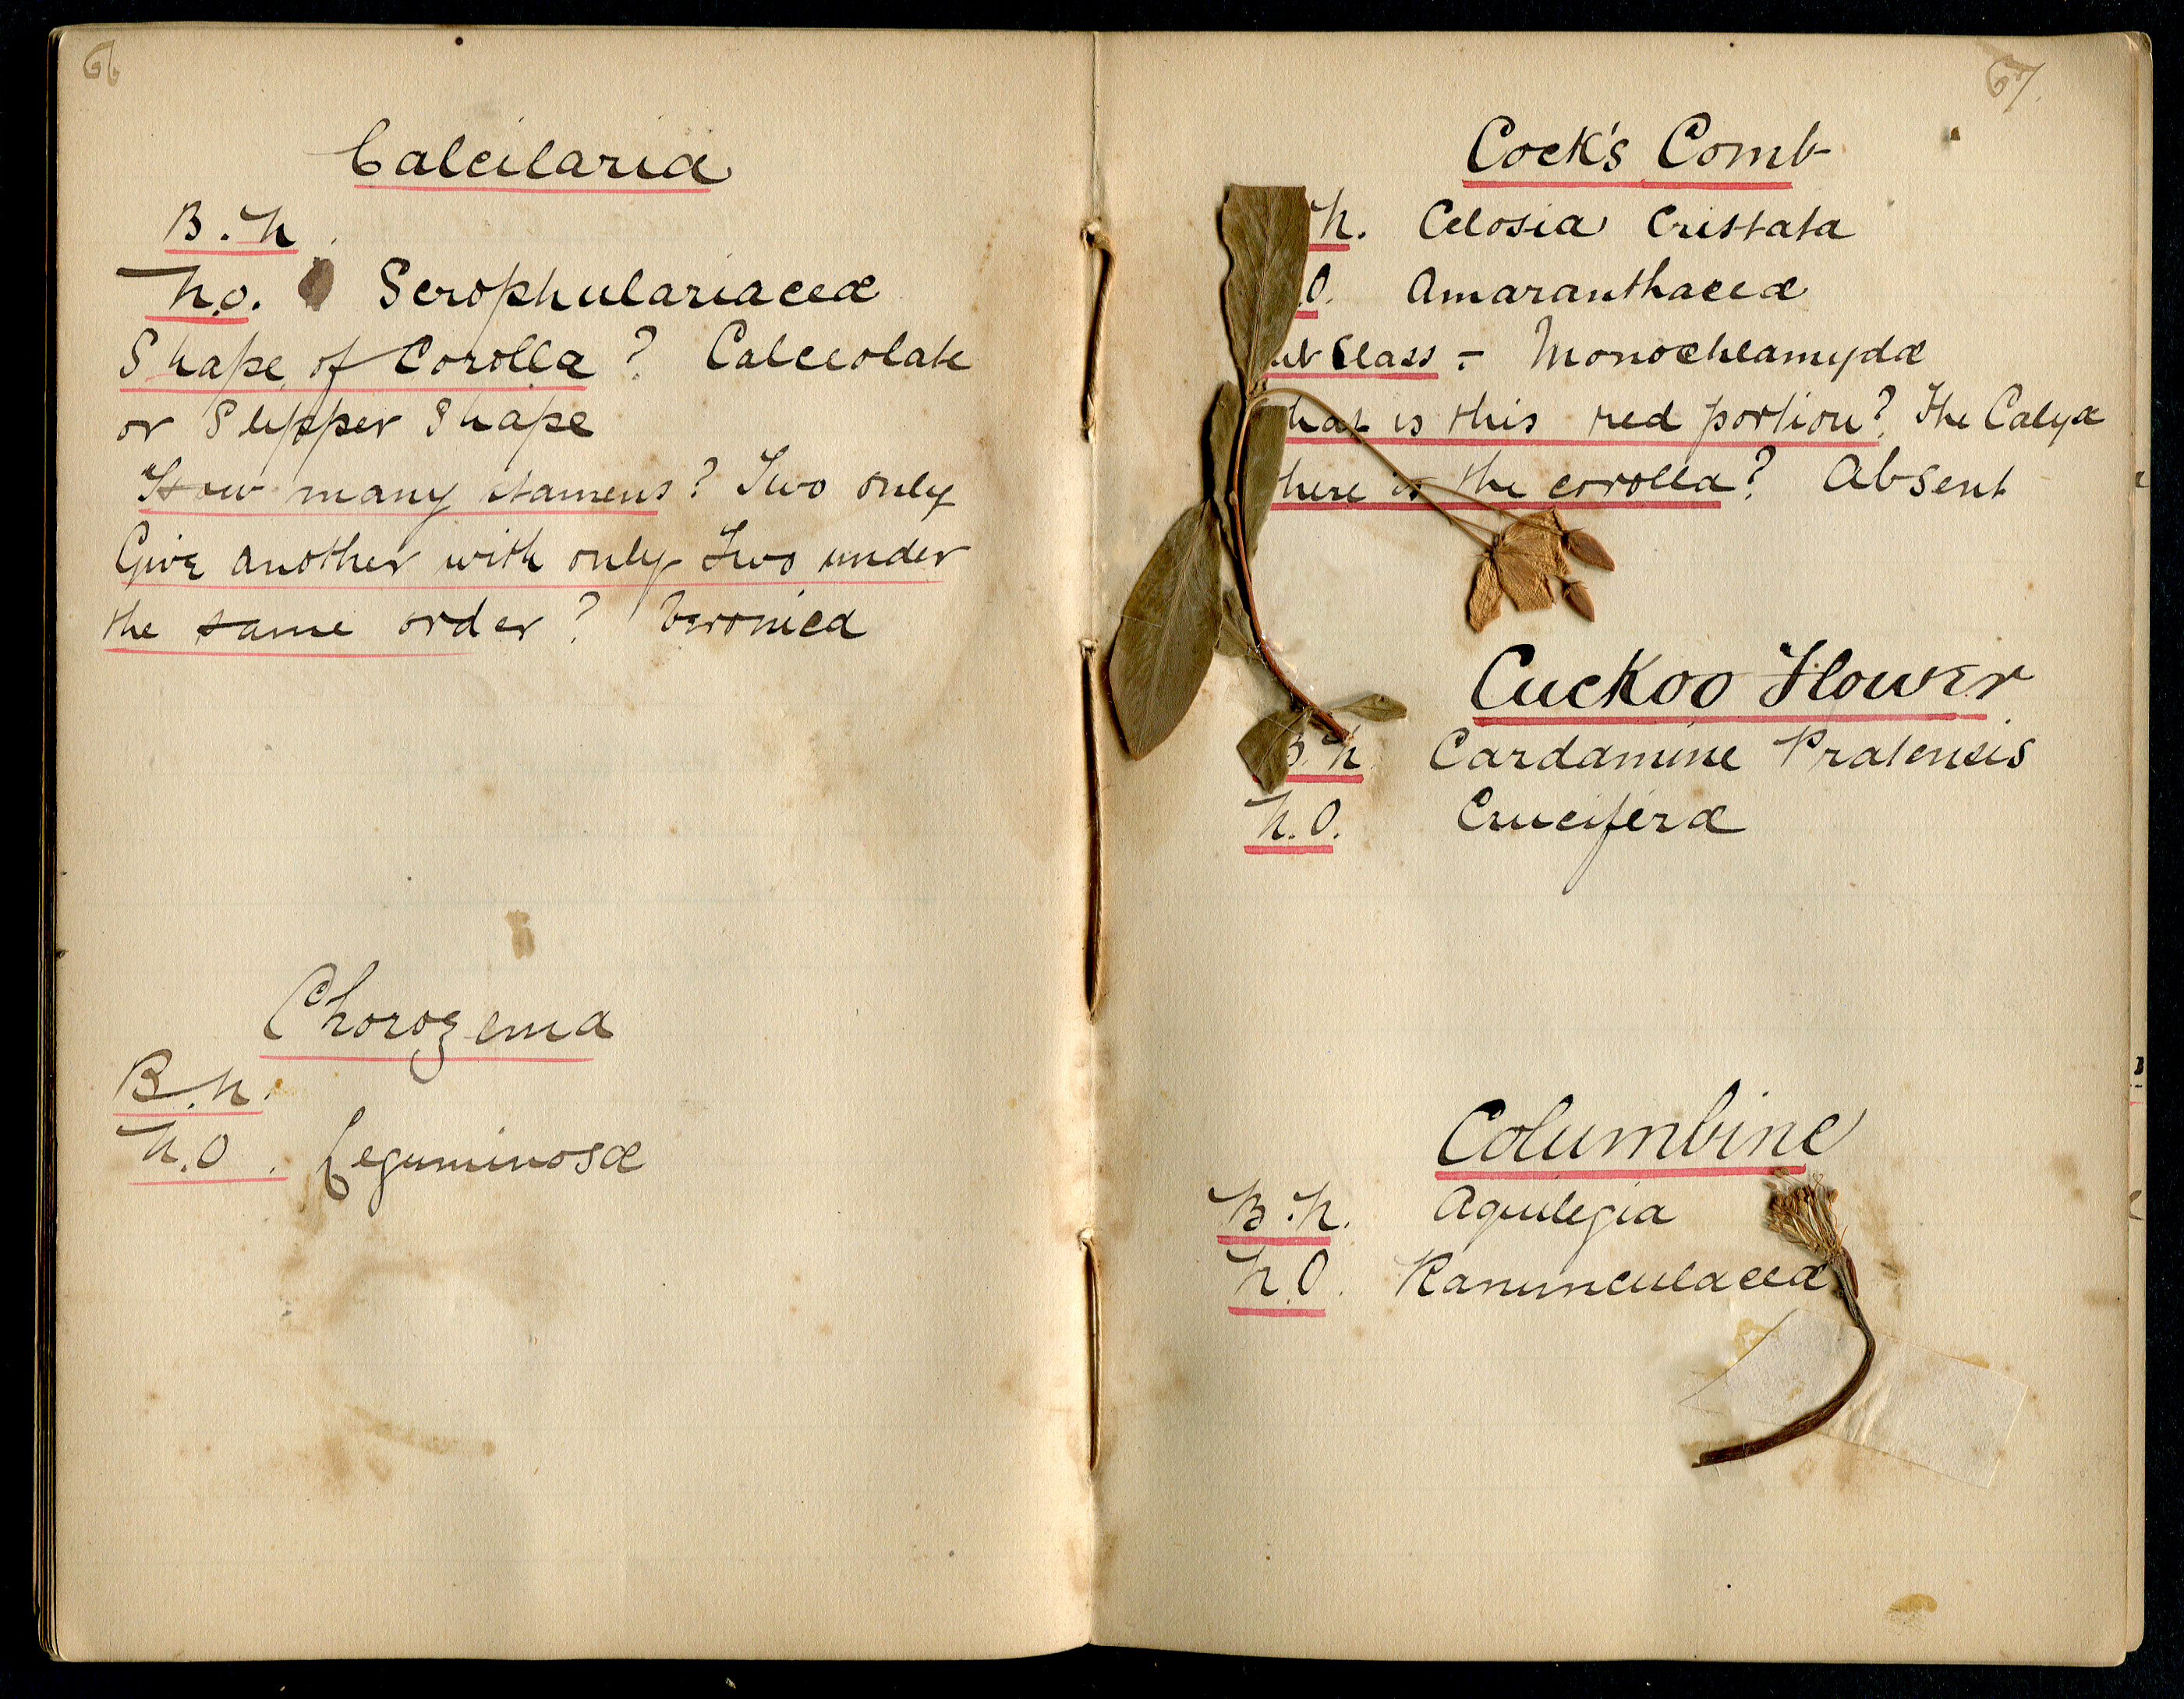 66
Calcilaria
B.N
N.O. Scrophulariaceæ
Shape of Corolla? Calceolate
or Slipper Shape
How many stamens? Two only
Give another with only two under
the same order? Veronica
Chorozema
B.N.
N.O. Leguminosæ
67.
Cock's Comb
N. Celosia Cristata
.O. Amaranthaceæ
ub Class - Monochlamydæ
hat is this red portion? The Calyx
here is the corolla? Absent
Cuckoo Flower
B.N. Cardamine Pratensis
N.O. Cruciferæ
Columbine
B.N. Aquilegia
N.O. Ranunculaceæ